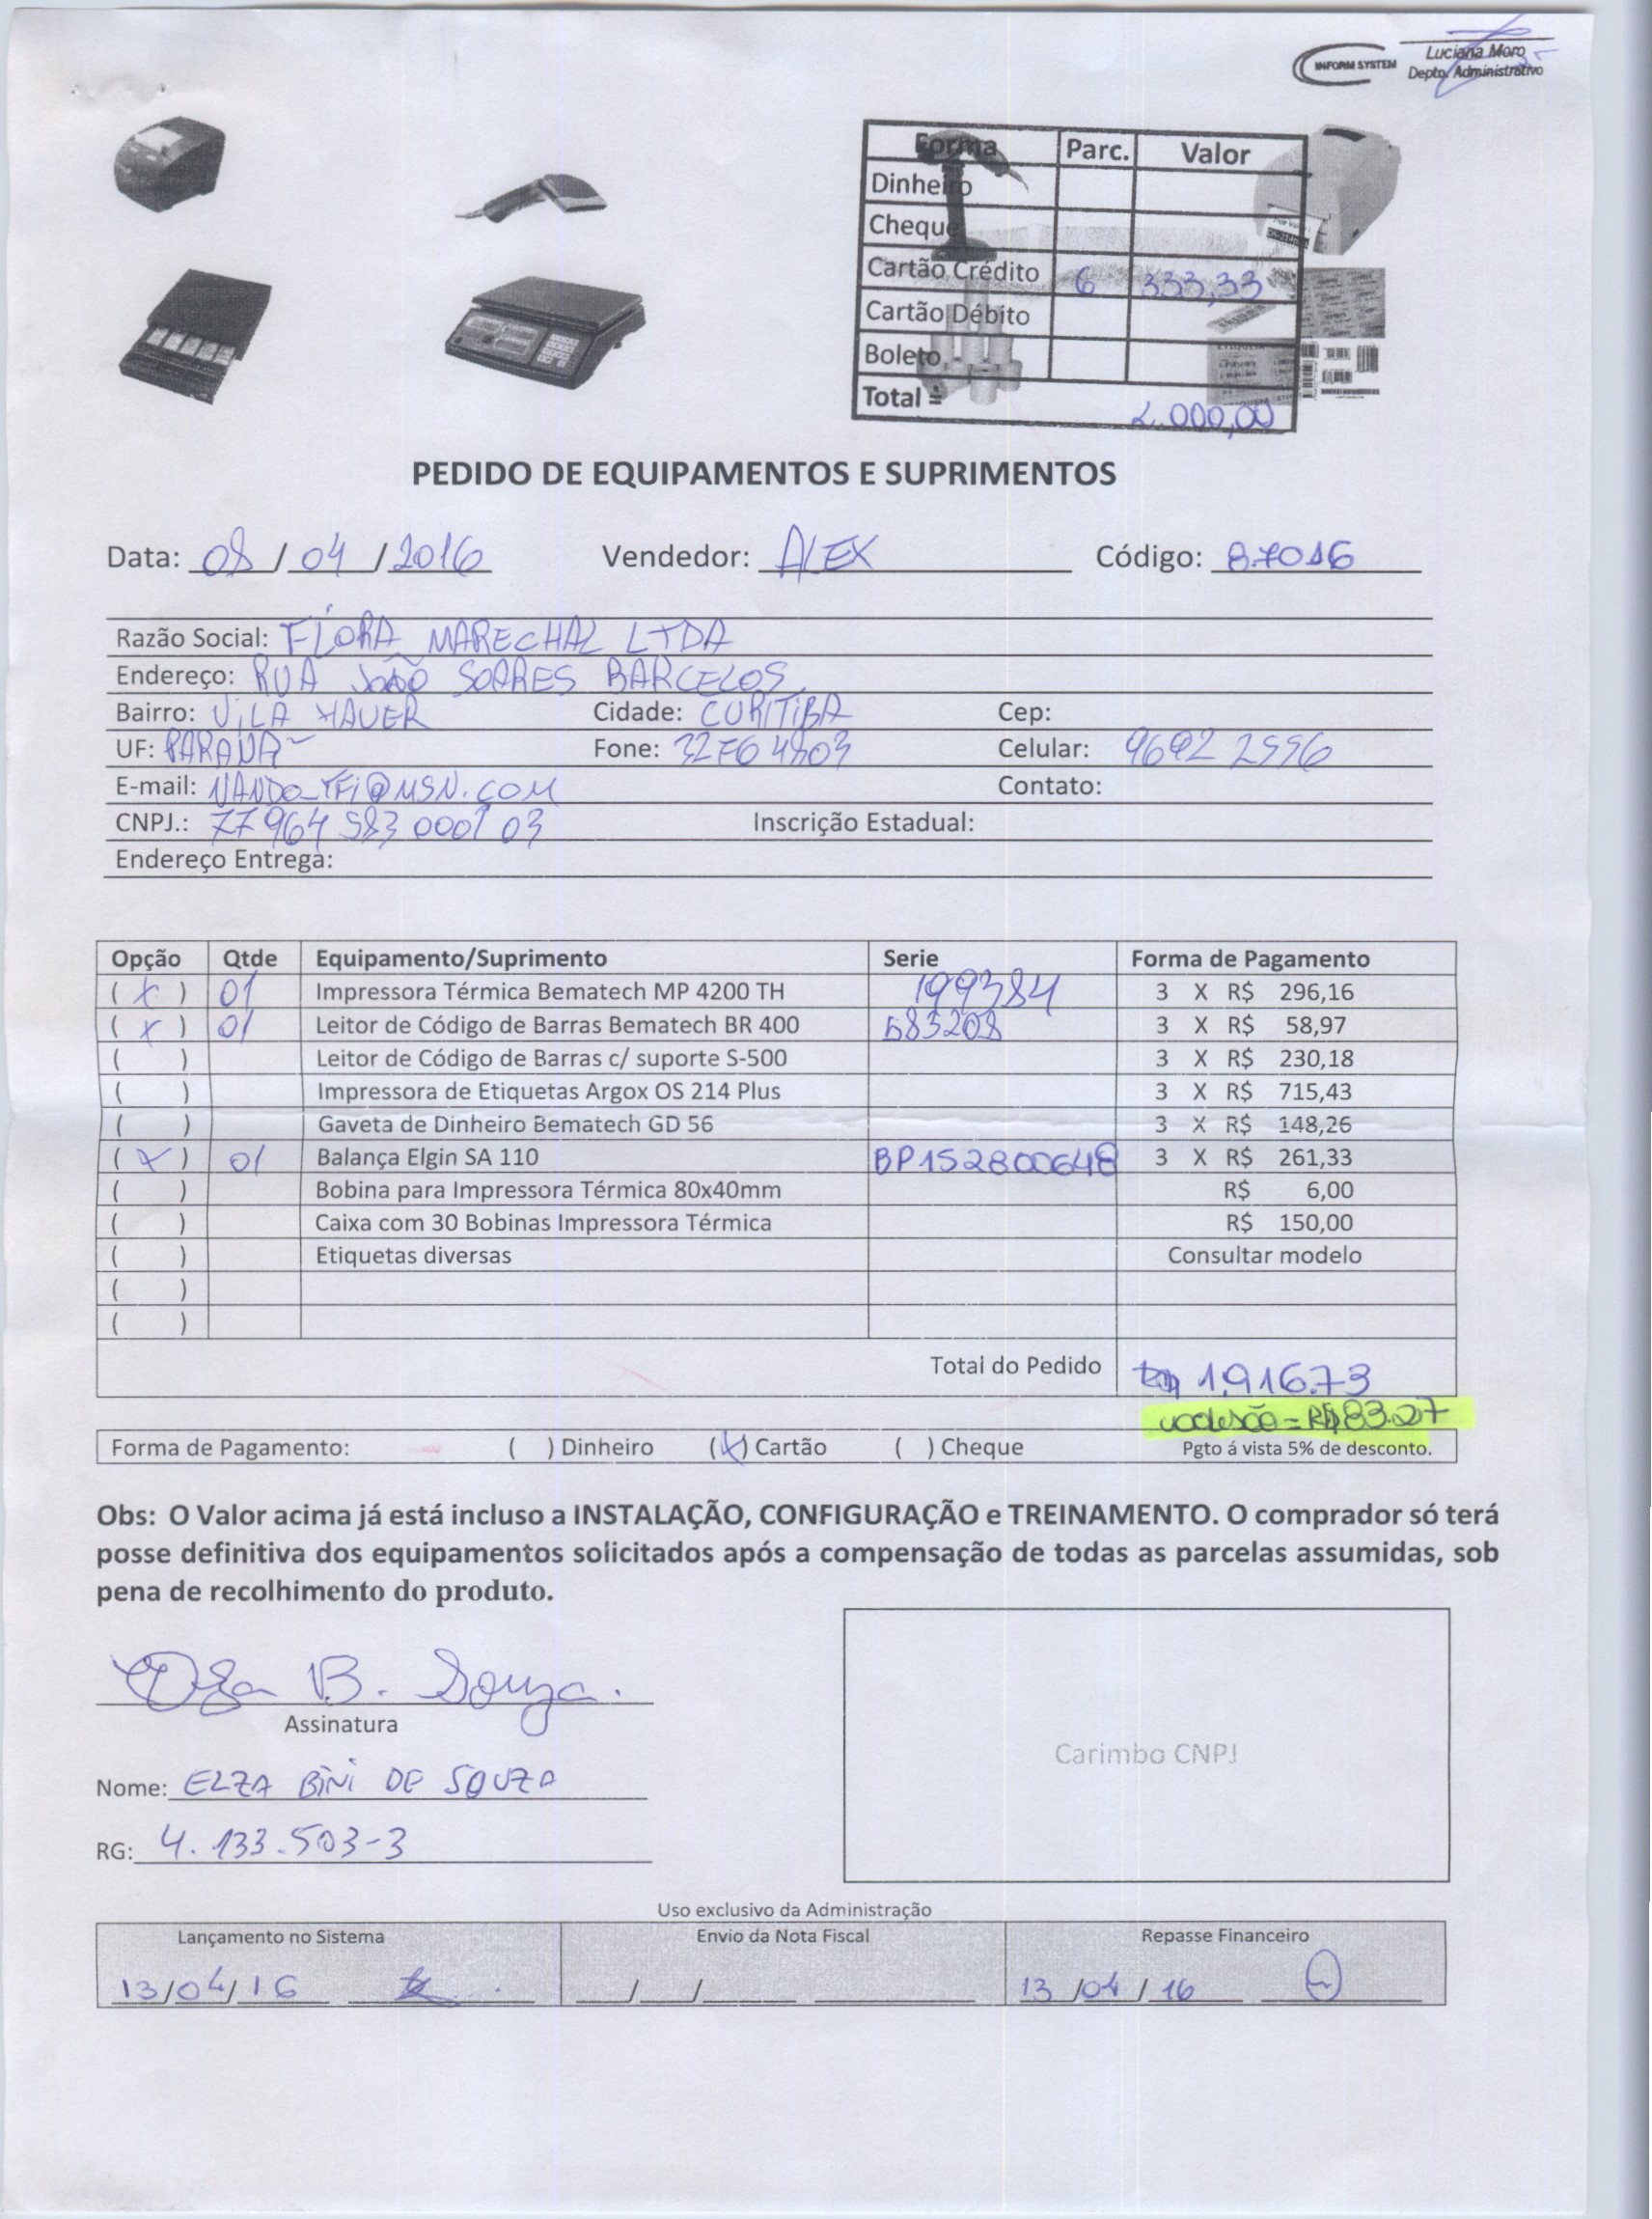 INFORM SYSTEM
Luciana Moro
Depto. Administrativo
Forma Parc. Valor
Dinheiro
Cheque
Cartão Crédito 6 333,33
Cartão Débito
Boleto
Total = 2.000,00
PEDIDO DE EQUIPAMENTOS E SUPRIMENTOS
Data: 08/04/2016 Vendedor: ALEX Código: 87016
Razão Social: FLORA MARECHAL LTDA
Endereço: RUA JOÃO SOARES BARCELOS
Bairro: VILA HAUER Cidade: CURITIBA Cep:
UF: PARANA Fone: 3276 4803 Celular: 9692 2996
E-mail: NANDO_TFI@MSN.COM Contato:
CNPJ.: 77 964 583 0001 03 Inscrição Estadual:
Endereço Entrega:
Opção Qtde Equipamento/Suprimento Serie Forma de Pagamento
( X ) 01 Impressora Térmica Bematech MP 4200 TH 199384 3 X R$ 296,16
( X ) 01 Leitor de Código de Barras Bematech BR 400 583208 3 X R$ 58,97
( ) Leitor de Código de Barras c/ suporte S-500 3 X R$ 230,18
( ) Impressora de Etiquetas Argox OS 214 Plus 3 X R$ 715,43
( ) Gaveta de Dinheiro Bematech GD 56 3 X R$ 148,26
( X ) 01 Balança Elgin SA 110 BP152800648 3 X R$ 261,33
( ) Bobina para Impressora Térmica 80x40mm R$ 6,00
( ) Caixa com 30 Bobinas Impressora Térmica R$ 150,00
( ) Etiquetas diversas Consultar modelo
( )
( )
Total do Pedido 1.916.73
= R$83.27
Forma de Pagamento: ( ) Dinheiro (X) Cartão ( ) Cheque Pgto á vista 5% de desconto.
Obs: O Valor acima já está incluso a INSTALAÇÃO, CONFIGURAÇÃO e TREINAMENTO. O comprador só terá
posse definitiva dos equipamentos solicitados após a compensação de todas as parcelas assumidas, sob
pena de recolhimento do produto.
Elza B. Souza.
Assinatura
Nome: ELZA BINI DE SOUZA
RG: 4.133.503-3
Carimbo CNPJ
Uso exclusivo da Administração
Lançamento no Sistema Envio da Nota Fiscal Repasse Financeiro
13/04/16 / / 13/04/16